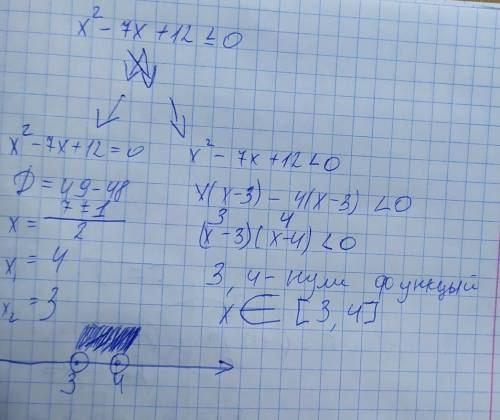 x² - 7x + 12 ≤ 0
x² - 7x + 12 = 0
D = 49 - 48
x = (7 ± 1) / 2
x₁ = 4
x₂ = 3
x² - 7x + 12 < 0
x(x - 3) - 4(x - 3) < 0
3 4
(x - 3)(x - 4) < 0
3, 4 - нули функций
x ∈ [3, 4]
3 4